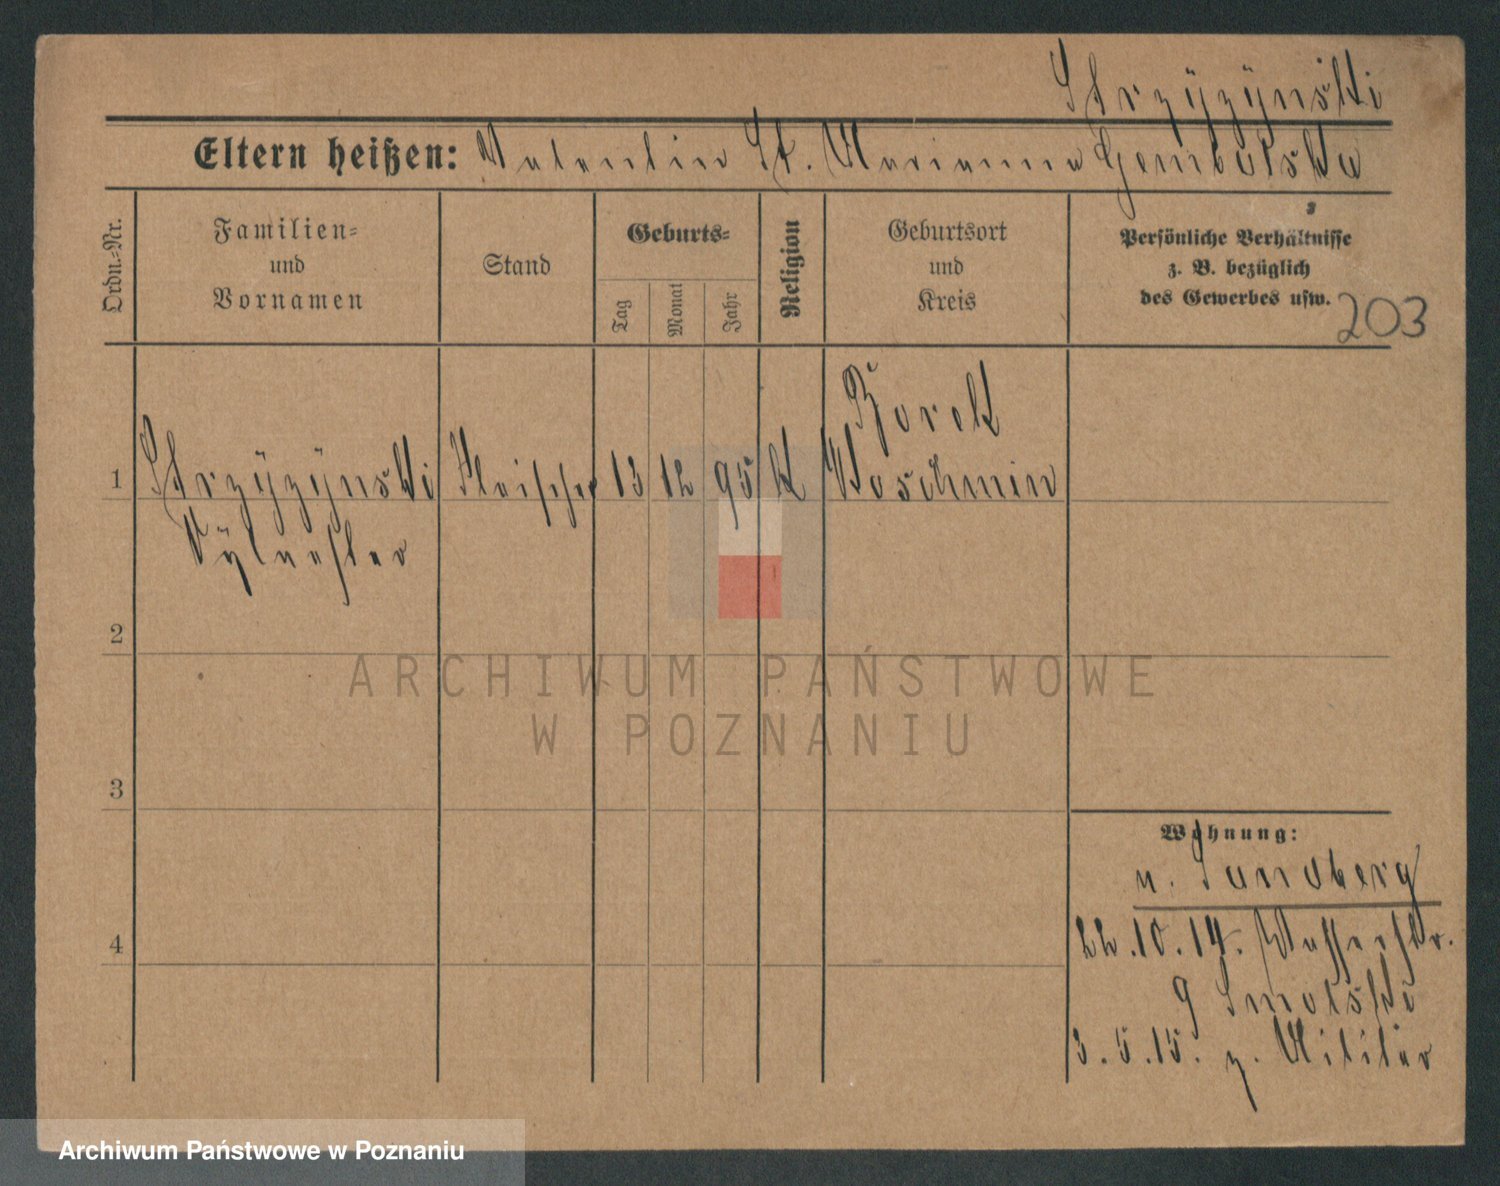 Strzyzynski
Eltern heißen: Valentin St. Marianna Gembolska
Ordn.-Nr.
Familien-
und
Vornamen
Stand
Geburts-
Tag
Monat
Jahr
Religion
Geburtsort
und
Kreis
Persönliche Verhältnisse
z. B. bezüglich
des Gewerbes usw.
203
Borek
1 Strzyzynski Fleischer 13 12 95 K Koschmin
Sylvester
2
3
4
Wohnung:
n. Sandberg
22.10.14. Wasserstr.
9 Smolski
3.5.15. z. Militär
ARCHIWUM PAŃSTWOWE
W POZNANIU
Archiwum Państwowe w Poznaniu